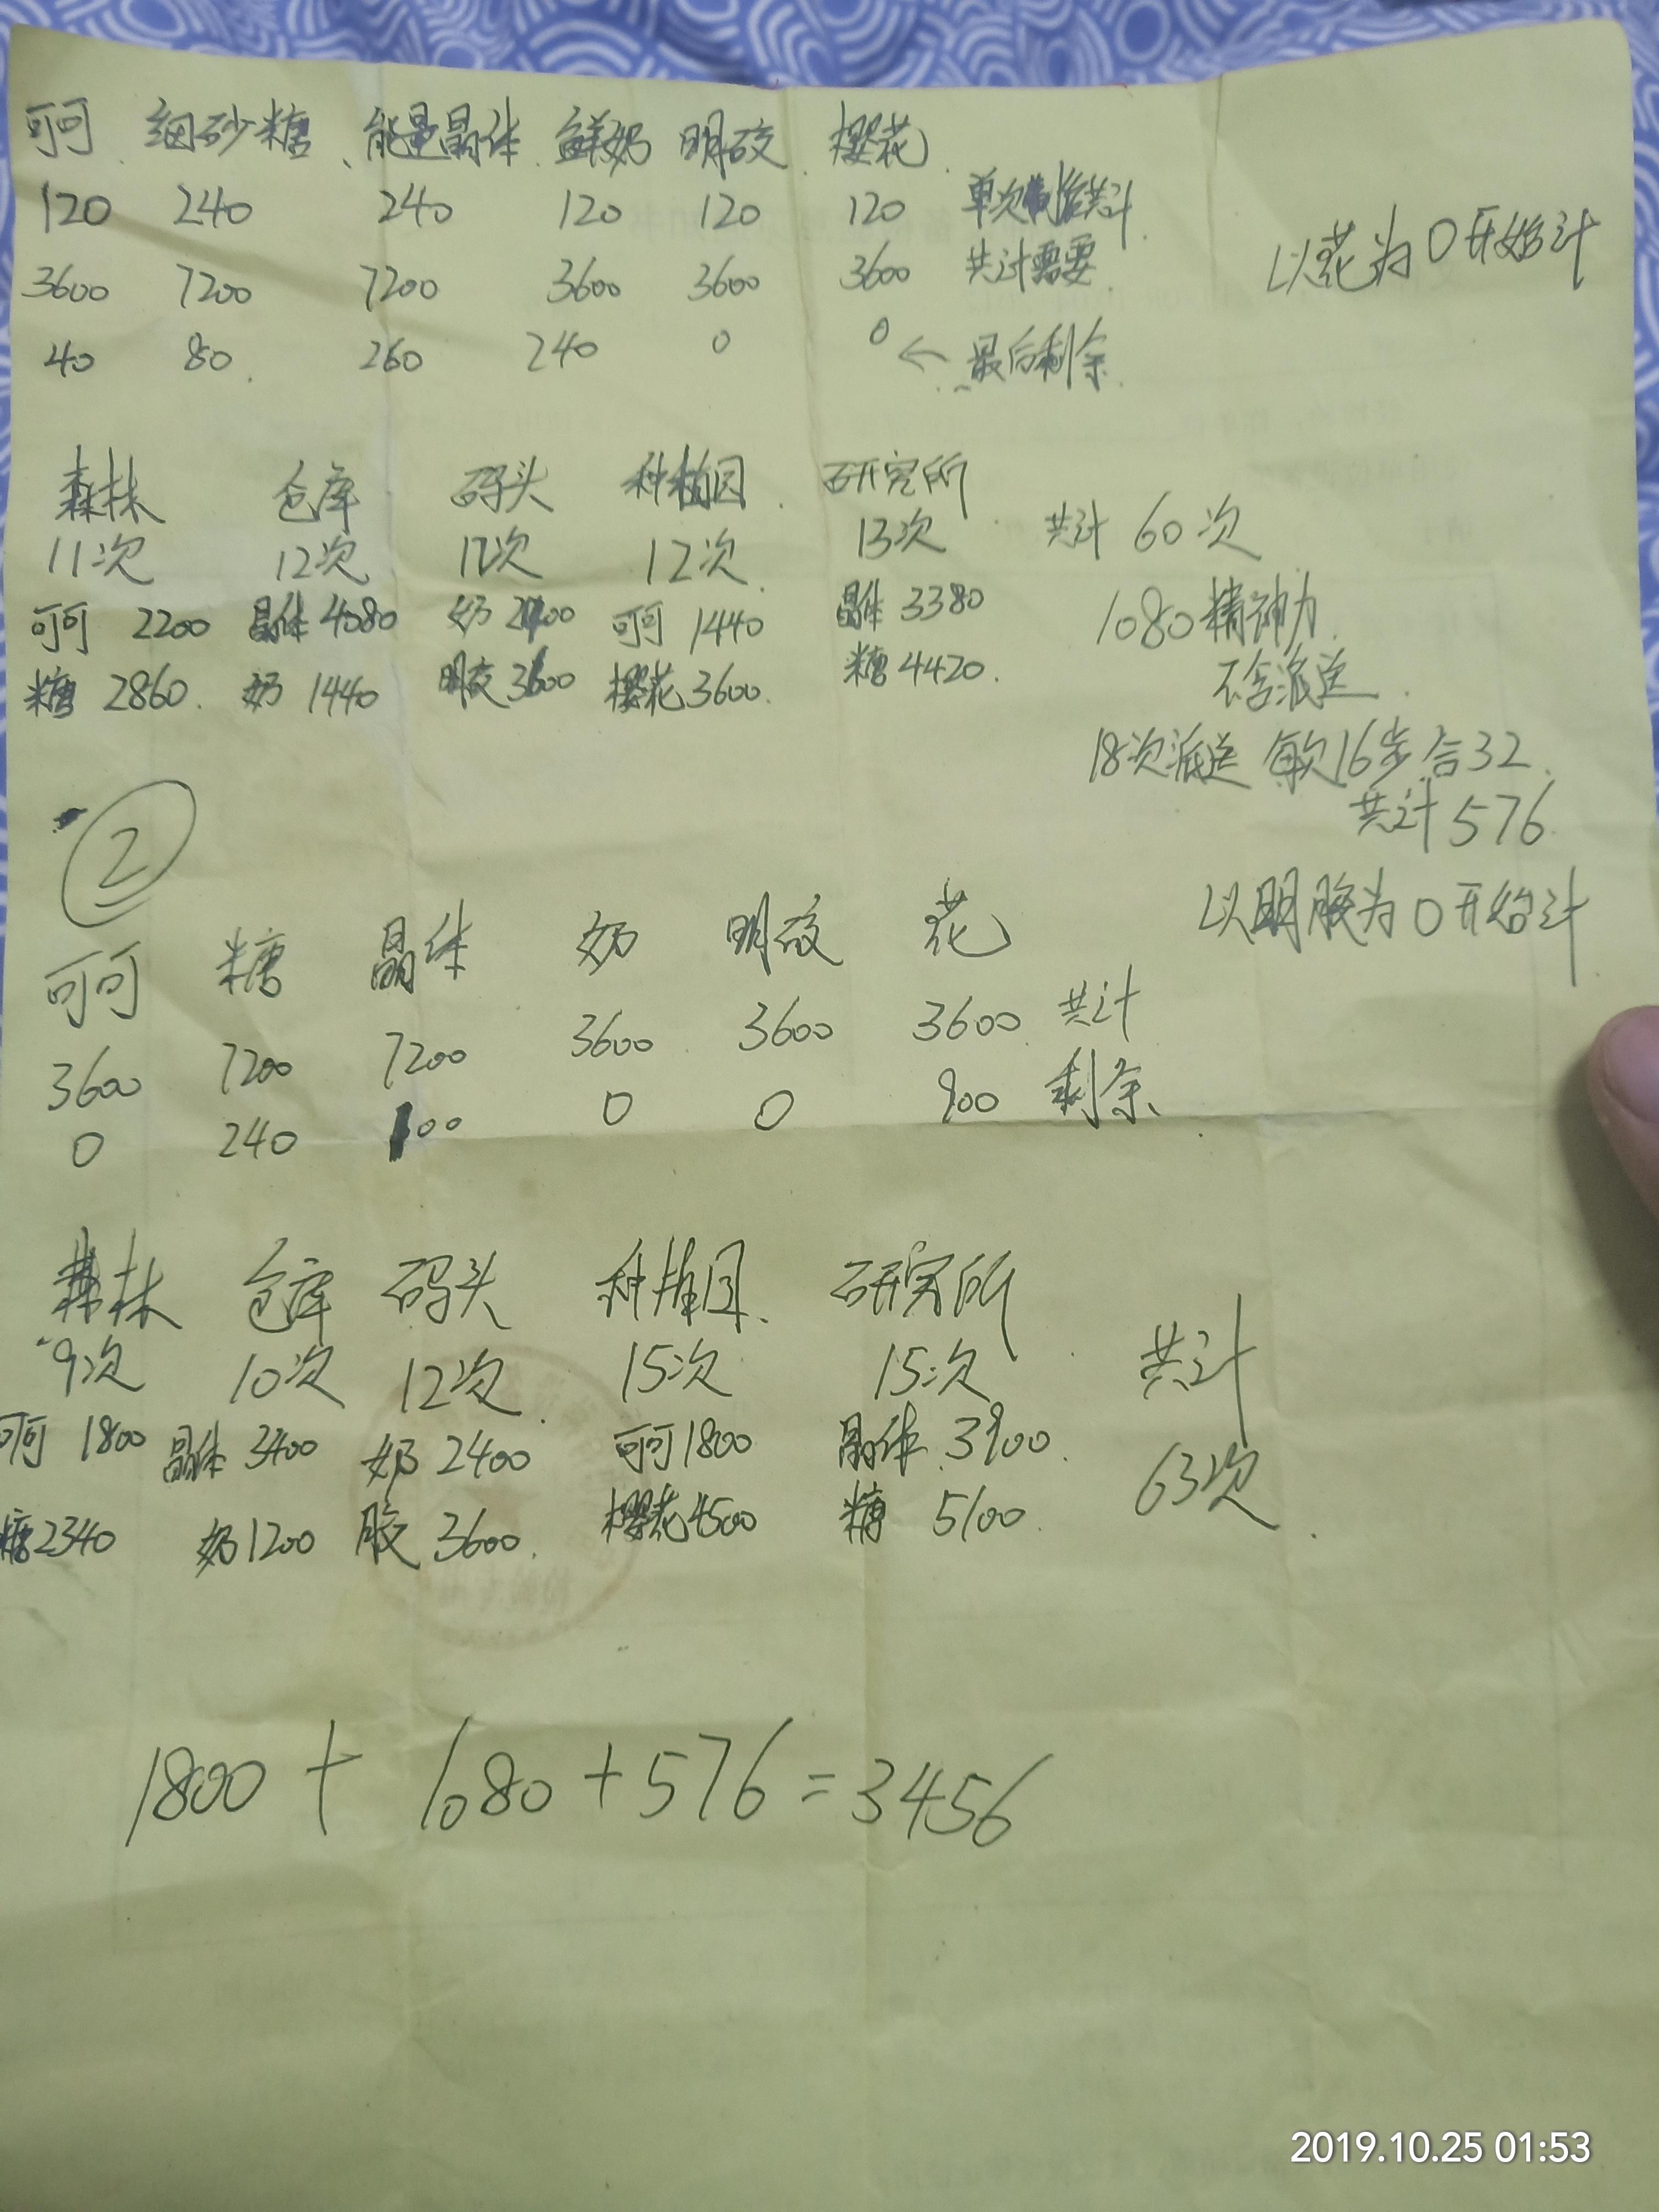 可可 细砂糖、能量晶体 鲜奶 明胶 樱花
120 240 240 120 120 120 单次制作共计
3600 7200 7200 3600 3600 3600 共计需要
以花为0开始计
40 80 260 240 0 0 ← 最后剩余
森林 仓库 码头 种植园 研究所
11次 12次 12次 12次 13次 共计 60次
可可 2200 晶体 4080 奶 2400 可可 1440 晶体 3380 1080精神力
糖 2860 奶 1440 明胶 3600 樱花 3600 糖 4420 不含派送
18次派送 每次16步合32
共计 576
②
以明胶为0开始计
可可 糖 晶体 奶 明胶 花
3600 7200 7200 3600 3600 3600 共计
0 240 100 0 0 900 剩余
森林 仓库 码头 种植园 研究所
9次 10次 12次 15次 15次 共计
可可 1800 晶体 3400 奶 2400 可可 1800 晶体 3900 63次
糖 2340 奶 1200 胶 3600 樱花 4500 糖 5100
1800 + 1080 + 576 = 3456
2019.10.25 01:53